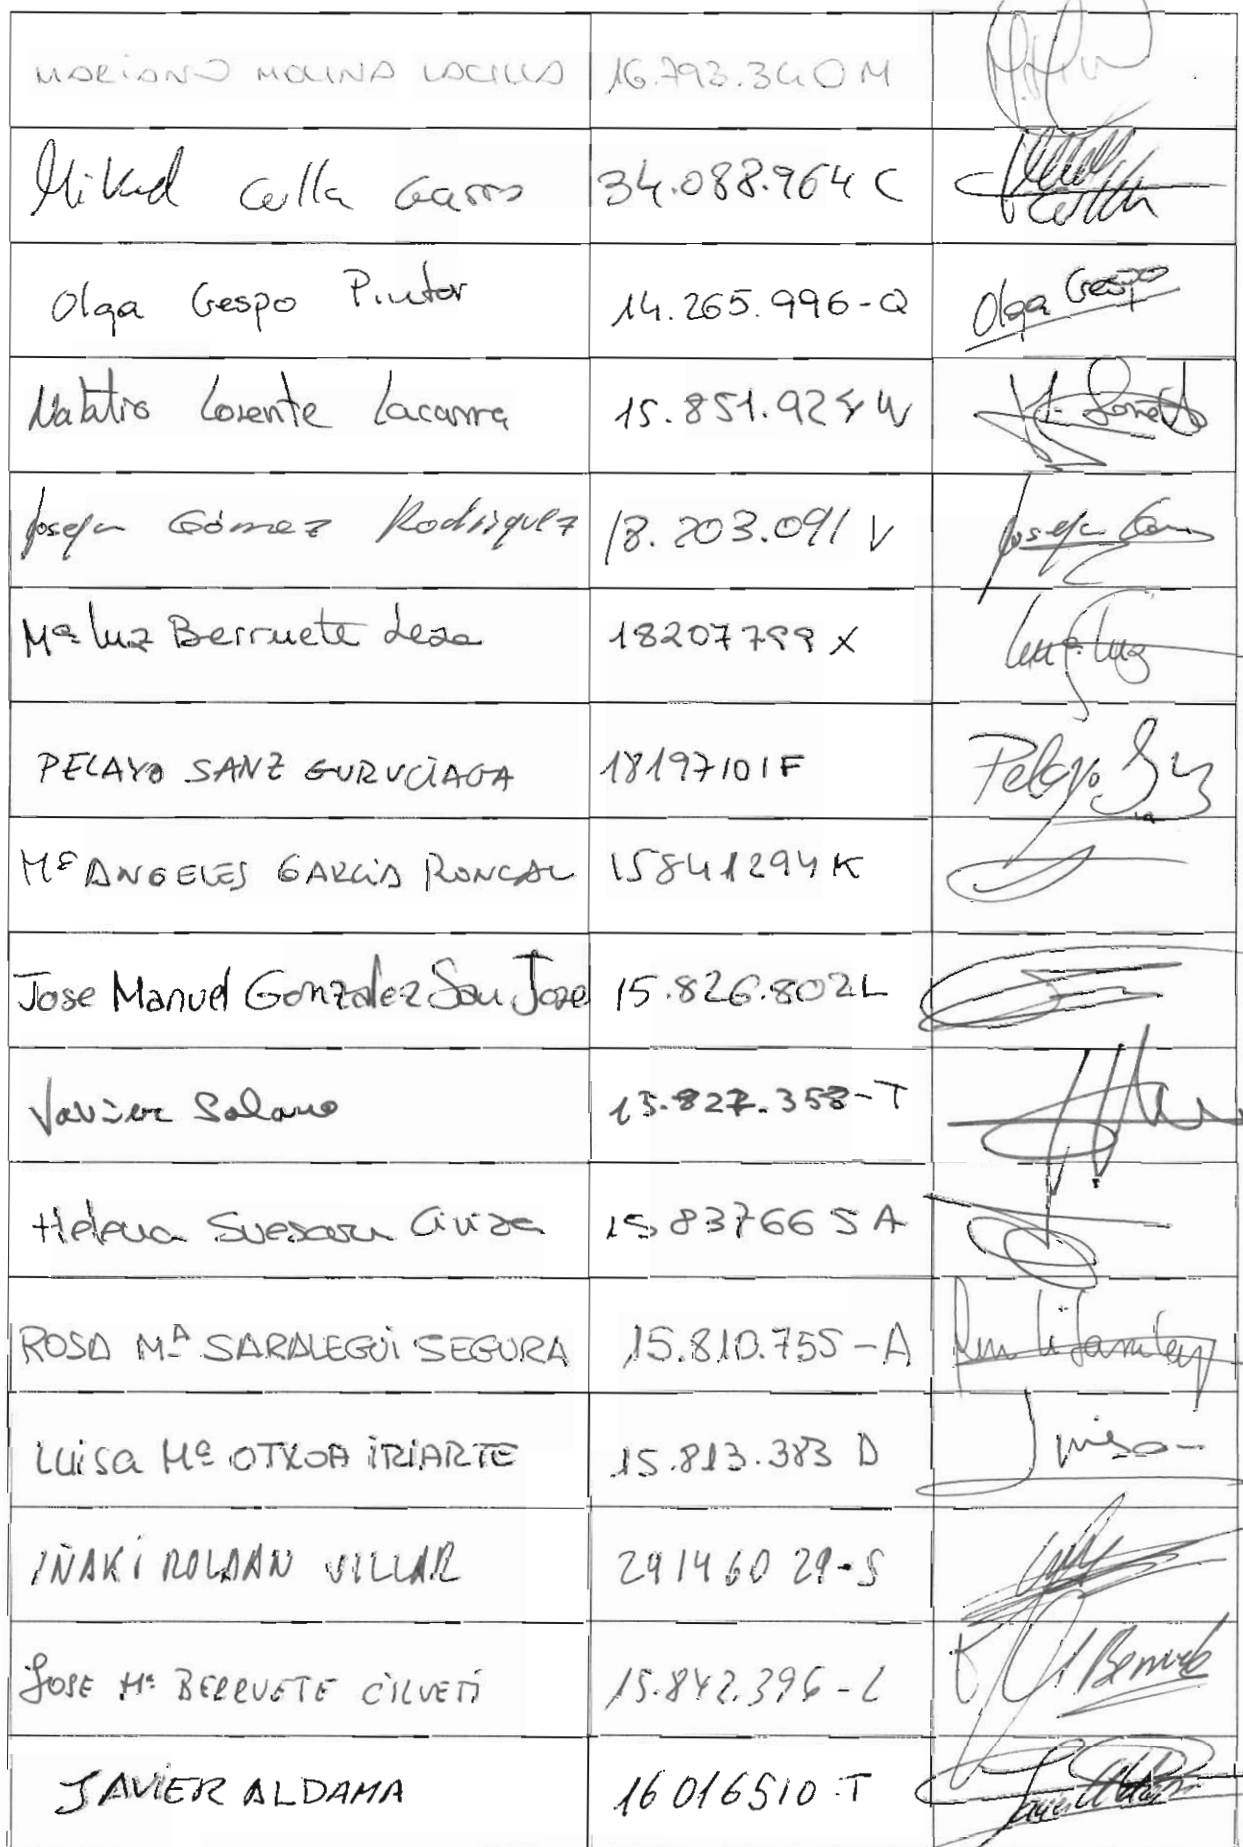 MARIANO MOLINA LACILLA 16.793.340M
Mikel Cella Garro 34.088.964 C
Olga Crespo Pintor 14.265.996-Q Olga Crespo
Lorente Lacarra 15.851.924 W
Josefa Gómez Rodríguez 18.203.091 V Josefa
Mª Luz Berruete Leza 18207799 X Luz
PELAYO SANZ GURUCIAGA 18197101F Pelayo Sanz
Mª ANGELES GARCIA RONCAL 15841294 K
Jose Manuel Gonzalez San Jose 15.826.802L
Javier Solano 15.827.358-T
Helena Suescun 15.837665 A
ROSA Mª SARALEGUI SEGURA 15.810.755-A
LUISA Mª OTXOA IRIARTE 15.813.383 D Luisa
IÑAKI ROLDAN VILLAR 29146029-S
JOSE Mª BERRUETE CILVETI 15.842.396-L Berruete
JAVIER ALDAMA 16016510-T